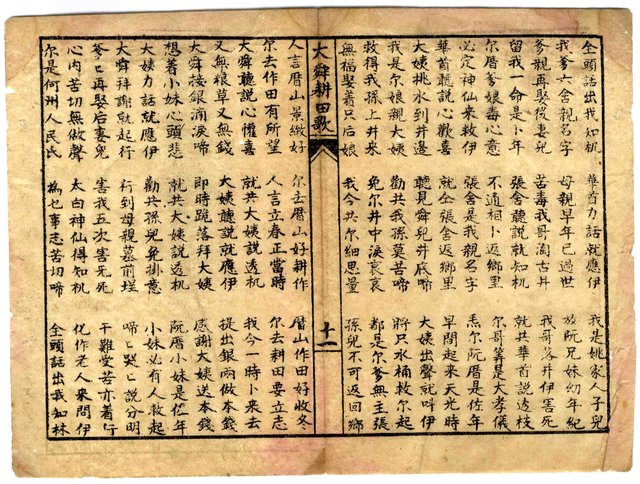 全頭話出我知机 華首力話就應伊 我是姚家人子兒
我爹六舍親名字 母親早年已過世 放阮兄妹幼年紀
爹親再娶後妻兒 苦毒我哥淘古井 我哥落井伊害死
留我一命是卜年 張舍聽說就知机 就共華首說透枝
尔厝爹娘毒心意 不通相卜返鄉里 尔哥算是大孝儀
必定神仙來救伊 張舍是我親名字 尔阮厝是佐年
華首聽說心歡喜 就仝張舍返鄉里 早間起來天光時
大姨挑水到井邊 聽見舜兒井底啼 大姨出聲就呌伊
我是尔娘親大姨 勸共我孫莫苦啼 將只水桶救尔起
救得我孫上井來 免尔井中淚哀哀 都是尔爹無主張
無福娶着只后娘 我今共尔細思量 孫兒不可返回鄉
大舜耕田歌 十一
人言暦山景緻好 尔去暦山好耕作 暦山作田好收冬
尔去作田有所望 人言立春正當時 尔去耕田要立志
大舜聽說心懽喜 就共大姨說透机 我今一時卜來去
又無粮草又無錢 大姨聽說就應伊 提出銀兩做本錢
大舜接銀滴淚啼 即時跪落拜大姨 感謝大姨送本錢
想着小妹心頭悲 就共大姨說透机 阮厝小妹是佐年
大姨力話就應伊 勸共孫兒免掛意 小妹必有人救起
大舜拜謝就起行 行到母親墓前埕 啼〻哭〻說分明
爹〻再娶后妻兒 害我五次害无死 千難受苦亦着行
心內苦切無做聲 太白神仙得知机 化作老人來問伊
尔是何州人民氏 為乜事志苦切啼 全頭話出我知林